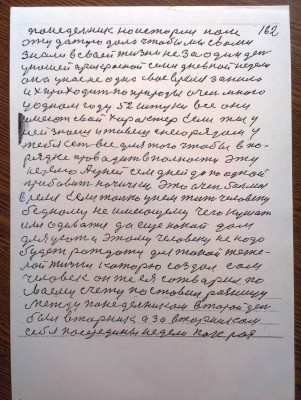 понедельник нистории поле 162
эту датую дала чтобы мы с вами
знали в своей жизни не за один ден
у нашей прекрасной семи дневной недели
она у нас не одна свае время заняла
и их приходит по природы очен много
у одном году 52 штуки все они
имеют свай характер Если ты у
ней знаеш и живеш с нею рядом у
тебя ест все для того чтобы в по-
рядке провадит вполности эту
неделю А у ней сем дней да по одной
прибавит ночи и Это очен балшая
время Если толко у нем жит человеку
бедному не имеющему чего кушат
или одивать да еще нокой дом
для уюта Этому человеку не надо
будет рождат для такой теже-
лой жизни которую создал сам
человек он же ея сотварил по
своему счету поставил разницу
между понедельником второй ден
был вторник а за вторником
себя посередины недели как раз